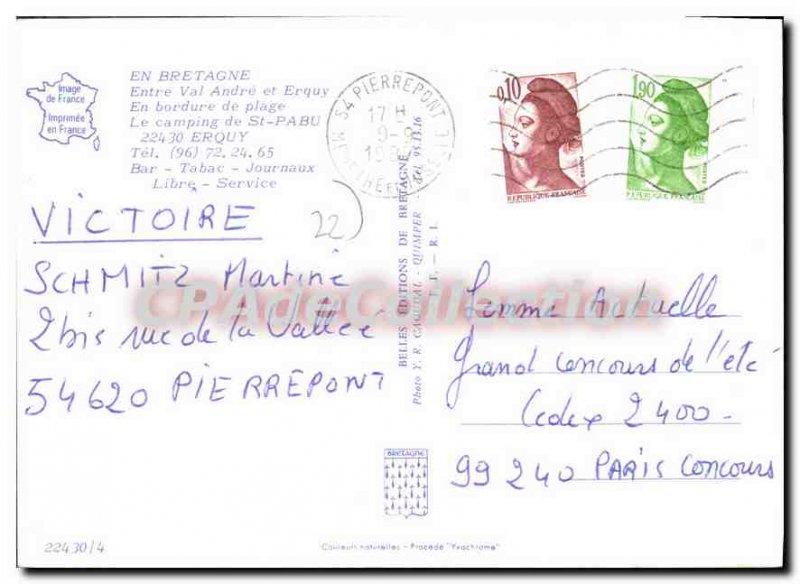 Image
de France
Imprimée
en France
EN BRETAGNE
Entre Val André et Erquy
En bordure de plage
Le camping de St-PABU
22430 ERQUY
Tél. (96) 72.24.65
Bar - Tabac - Journaux
Libre - Service
54 PIERREPONT
17 H
9-9
0,10
POSTES
REPUBLIQUE FRANÇAISE
1,90
POSTES
REPUBLIQUE FRANÇAISE
VICTOIRE
22)
SCHMITZ Martine
2bis rue de la Vallée
54620 PIERREPONT
CPAdeCollection
BELLES EDITIONS DE BRETAGNE
Photo Y. R. CAOUDAL - QUIMPER - Tél. 95.13.16
I. F. - R. I.
Femme Actuelle
Grand Concours de l'été
Cedex 2400
99240 PARIS Concours
BRETAGNE
22430/4
Couleurs naturelles - Procédé "Yvachrome"